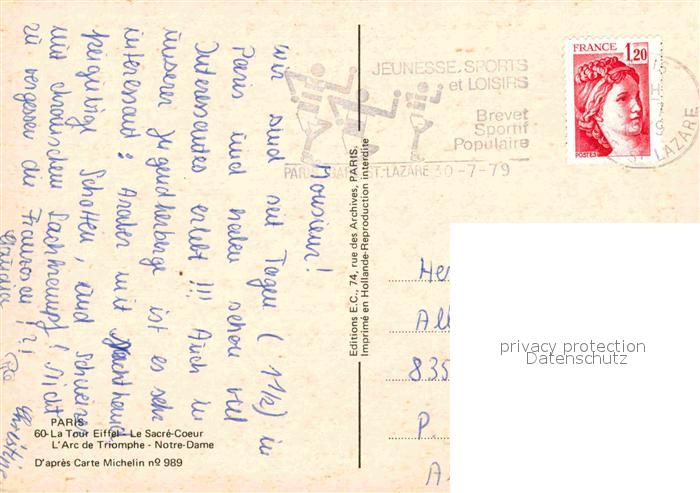 Monsieur!
Wir sind seit Tagen (1 1/2) in
Paris und haben schon viel
Interessantes erlebt!!! Auch in
unserer Jugendherberge ist es sehr
interessant: Araber mit Nachthemd
Schotten, und Schweizer
mit chronischem Lachkrampf! Nicht
zu vergessen die Franzosen!?!
Christine
JEUNESSE.SPORTS
et LOISIRS
Brevet
Sportif
Populaire
PARIS GARE ST.LAZARE 30-7-79
FRANCE 1,20
POSTES
ST LAZARE
Editions E.C., 74, rue des Archives, PARIS.
Imprimé en Hollande-Reproduction Interdite
He
All
835
P.
A
privacy protection
Datenschutz
PARIS
60-La Tour Eiffel - Le Sacré-Coeur
L'Arc de Triomphe - Notre-Dame
D'après Carte Michelin nº 989